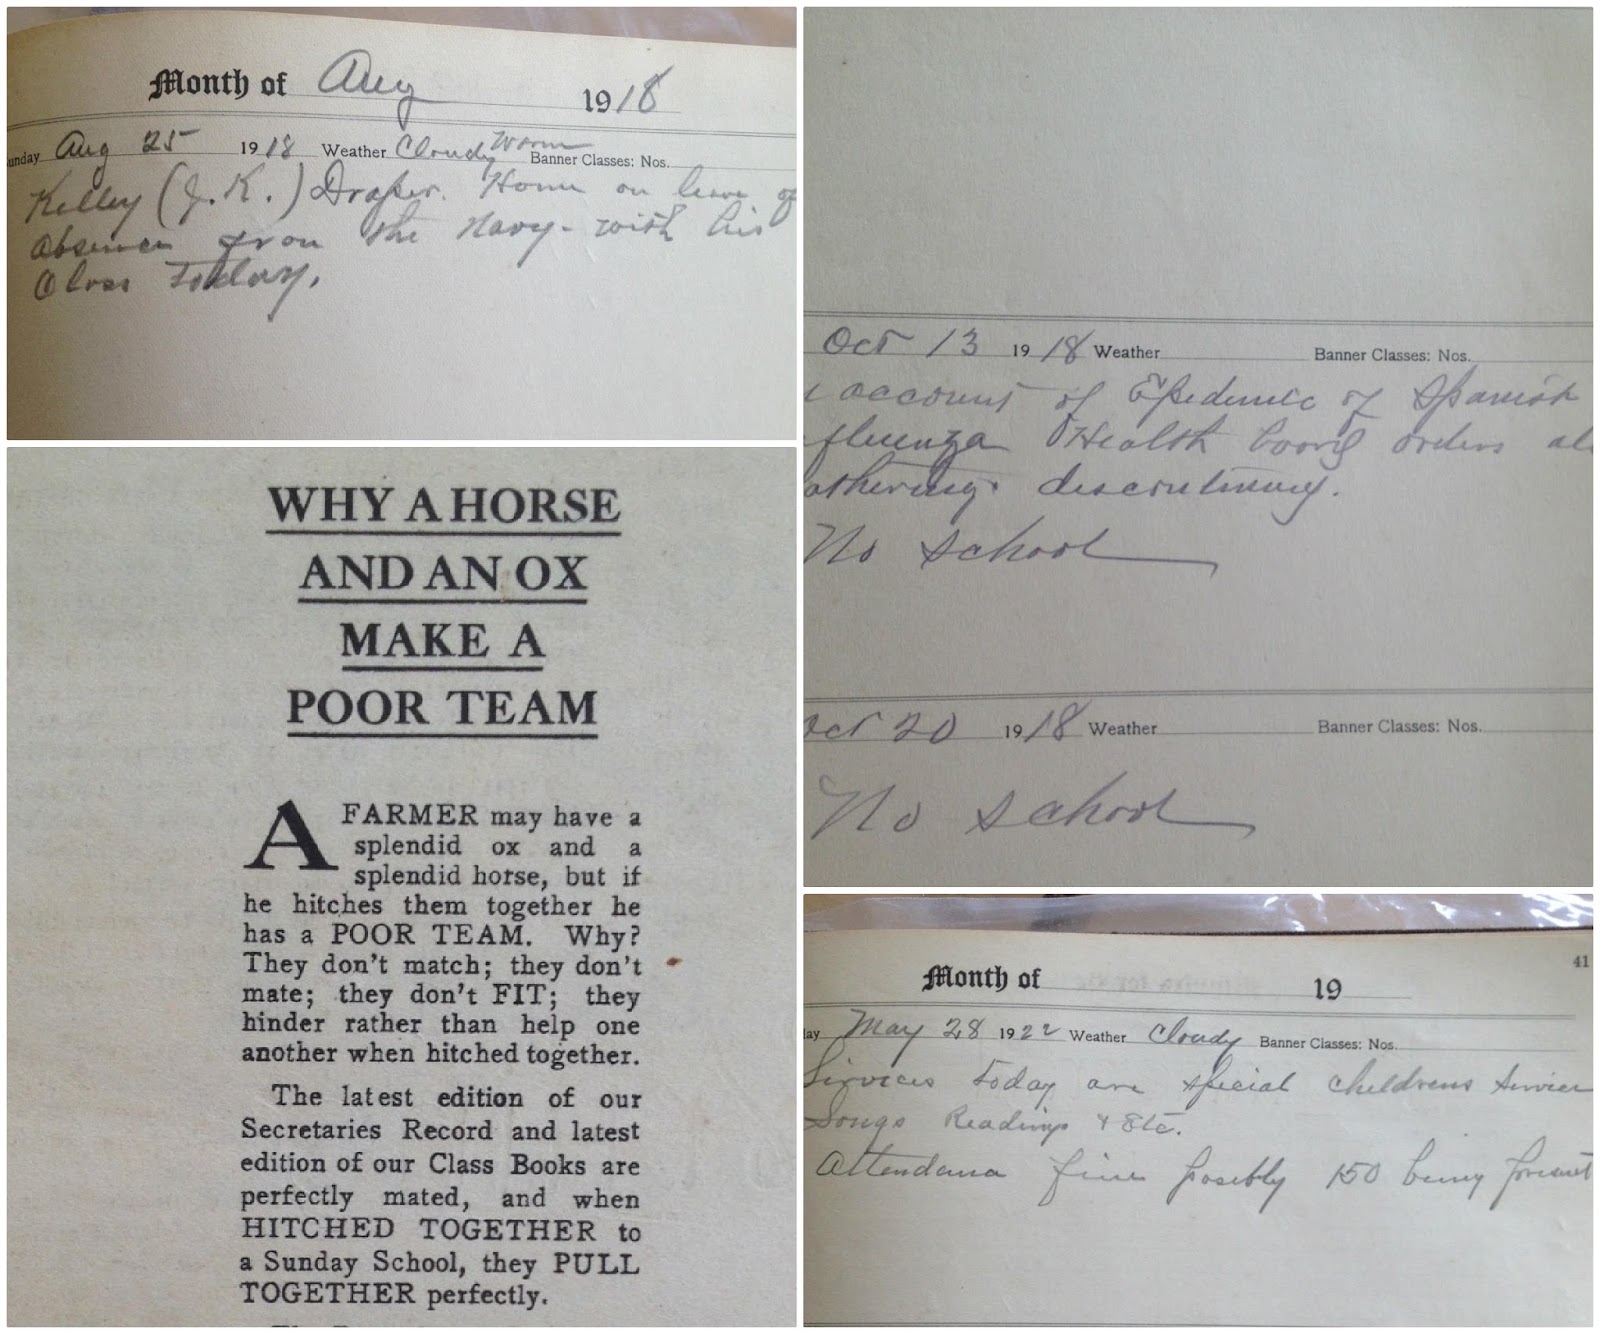 Month of Aug 1918
unday Aug 25 1918 Weather Cloudy Warm Banner Classes: Nos.
Kelley (J. K.) Draper. Home on leave of
absence from the Navy - with his
Class Today.
WHY A HORSE
AND AN OX
MAKE A
POOR TEAM
A FARMER may have a
splendid ox and a
splendid horse, but if
he hitches them together he
has a POOR TEAM. Why?
They don't match; they don't
mate; they don't FIT; they
hinder rather than help one
another when hitched together.
The latest edition of our
Secretaries Record and latest
edition of our Class Books are
perfectly mated, and when
HITCHED TOGETHER to
a Sunday School, they PULL
TOGETHER perfectly.
Oct 13 1918 Weather Banner Classes: Nos.
account of Epedemic of Spanish
fluenza Health board orders al
atherings discontinued.
No school
Oct 20 1918 Weather Banner Classes: Nos.
No school
41
Month of 19
ay May 28 1922 Weather Cloudy Banner Classes: Nos.
Services Today are special childrens service
Songs Readings & Etc.
Attendance fine possibly 150 being present